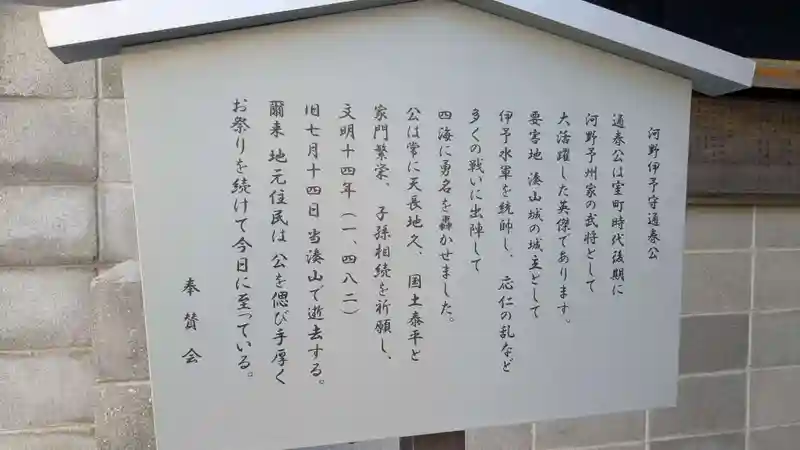 河野伊予守通春公
通春公は室町時代後期に
河野予州家の武将として
大活躍した英傑であります。
要害地 湊山城の城主として
伊予水軍を統帥し、応仁の乱など
多くの戦いに出陣して
四海に勇名を轟かせました。
公は常に天長地久、国土泰平と
家門繁栄、子孫相続を祈願し、
文明十四年(一、四八二)
旧七月十四日 当湊山で逝去する。
爾来 地元住民は 公を偲び手厚く
お祭りを続けて今日に至っている。
奉賛会